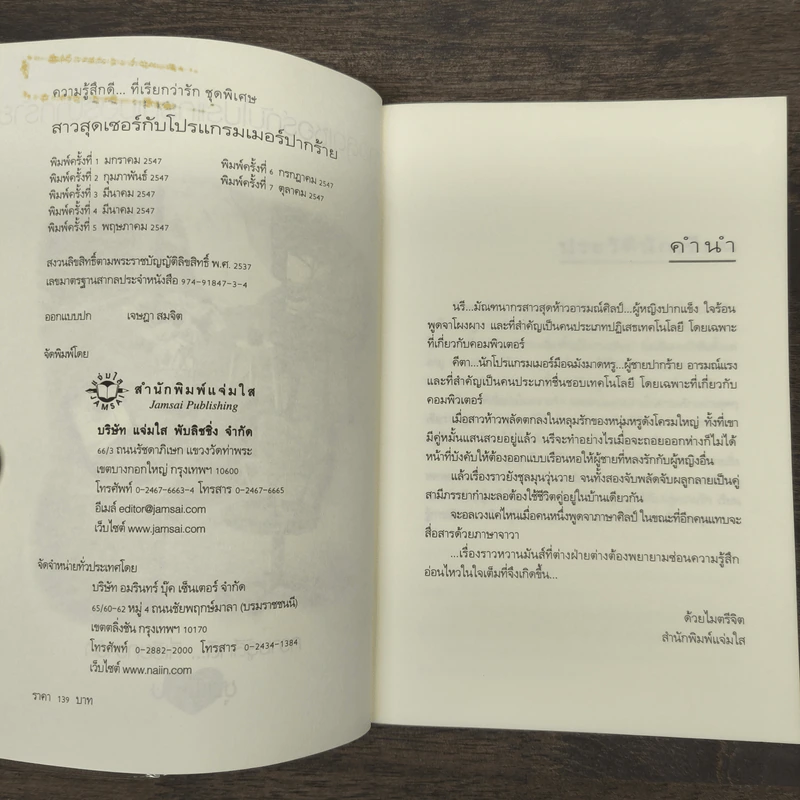 ความรู้สึกดี... ที่เรียกว่ารัก ชุดพิเศษ
สาวสุดเซอร์กับโปรแกรมเมอร์ปากร้าย
พิมพ์ครั้งที่ 1 มกราคม 2547
พิมพ์ครั้งที่ 2 กุมภาพันธ์ 2547
พิมพ์ครั้งที่ 3 มีนาคม 2547
พิมพ์ครั้งที่ 4 มีนาคม 2547
พิมพ์ครั้งที่ 5 พฤษภาคม 2547
พิมพ์ครั้งที่ 6 กรกฎาคม 2547
พิมพ์ครั้งที่ 7 ตุลาคม 2547
สงวนลิขสิทธิ์ตามพระราชบัญญัติลิขสิทธิ์ พ.ศ. 2537
เลขมาตรฐานสากลประจำหนังสือ 974-91847-3-4
ออกแบบปก เจษฎา สมจิต
จัดพิมพ์โดย
แจ่มใส
JAMSAI
สำนักพิมพ์แจ่มใส
Jamsai Publishing
บริษัท แจ่มใส พับลิชชิ่ง จำกัด
66/3 ถนนรัชดาภิเษก แขวงวัดท่าพระ
เขตบางกอกใหญ่ กรุงเทพฯ 10600
โทรศัพท์ 0-2467-6663-4 โทรสาร 0-2467-6665
อีเมล์ editor@jamsai.com
เว็บไซต์ www.jamsai.com
จัดจำหน่ายทั่วประเทศโดย
บริษัท อมรินทร์ บุ๊ค เซ็นเตอร์ จำกัด
65/60-62 หมู่ 4 ถนนชัยพฤกษ์มาลา (บรมราชชนนี)
เขตตลิ่งชัน กรุงเทพฯ 10170
โทรศัพท์ 0-2882-2000 โทรสาร 0-2434-1384
เว็บไซต์ www.naiin.com
ราคา 139 บาท
คำนำ
นรี...มัณฑนากรสาวสุดห้าวอารมณ์ศิลป์...ผู้หญิงปากแข็ง ใจร้อน
พูดจาโผงผาง และที่สำคัญเป็นคนประเภทปฏิเสธเทคโนโลยี โดยเฉพาะ
ที่เกี่ยวกับคอมพิวเตอร์
คีตา...นักโปรแกรมเมอร์มือฉมังมาดหรู...ผู้ชายปากร้าย อารมณ์แรง
และที่สำคัญเป็นคนประเภทชื่นชอบเทคโนโลยี โดยเฉพาะที่เกี่ยวกับ
คอมพิวเตอร์
เมื่อสาวห้าวพลัดตกลงในหลุมรักของหนุ่มหรูดังโครมใหญ่ ทั้งที่เขา
มีคู่หมั้นแสนสวยอยู่แล้ว นรีจะทำอย่างไรเมื่อจะถอยออกห่างก็ไม่ได้
หน้าที่บังคับให้ต้องออกแบบเรือนหอให้ผู้ชายที่หลงรักกับผู้หญิงอื่น
แล้วเรื่องราวยังชุลมุนวุ่นวาย จนทั้งสองจับพลัดจับผลูกลายเป็นคู่
สามีภรรยากำมะลอต้องใช้ชีวิตคู่อยู่ในบ้านเดียวกัน
จะอลเวงแค่ไหนเมื่อคนหนึ่งพูดจาภาษาศิลป์ ในขณะที่อีกคนแทบจะ
สื่อสารด้วยภาษาจาวา
...เรื่องราวหวานมันส์ที่ต่างฝ่ายต่างต้องพยายามซ่อนความรู้สึก
อ่อนไหวในใจเต็มที่จึงเกิดขึ้น...
ด้วยไมตรีจิต
สำนักพิมพ์แจ่มใส